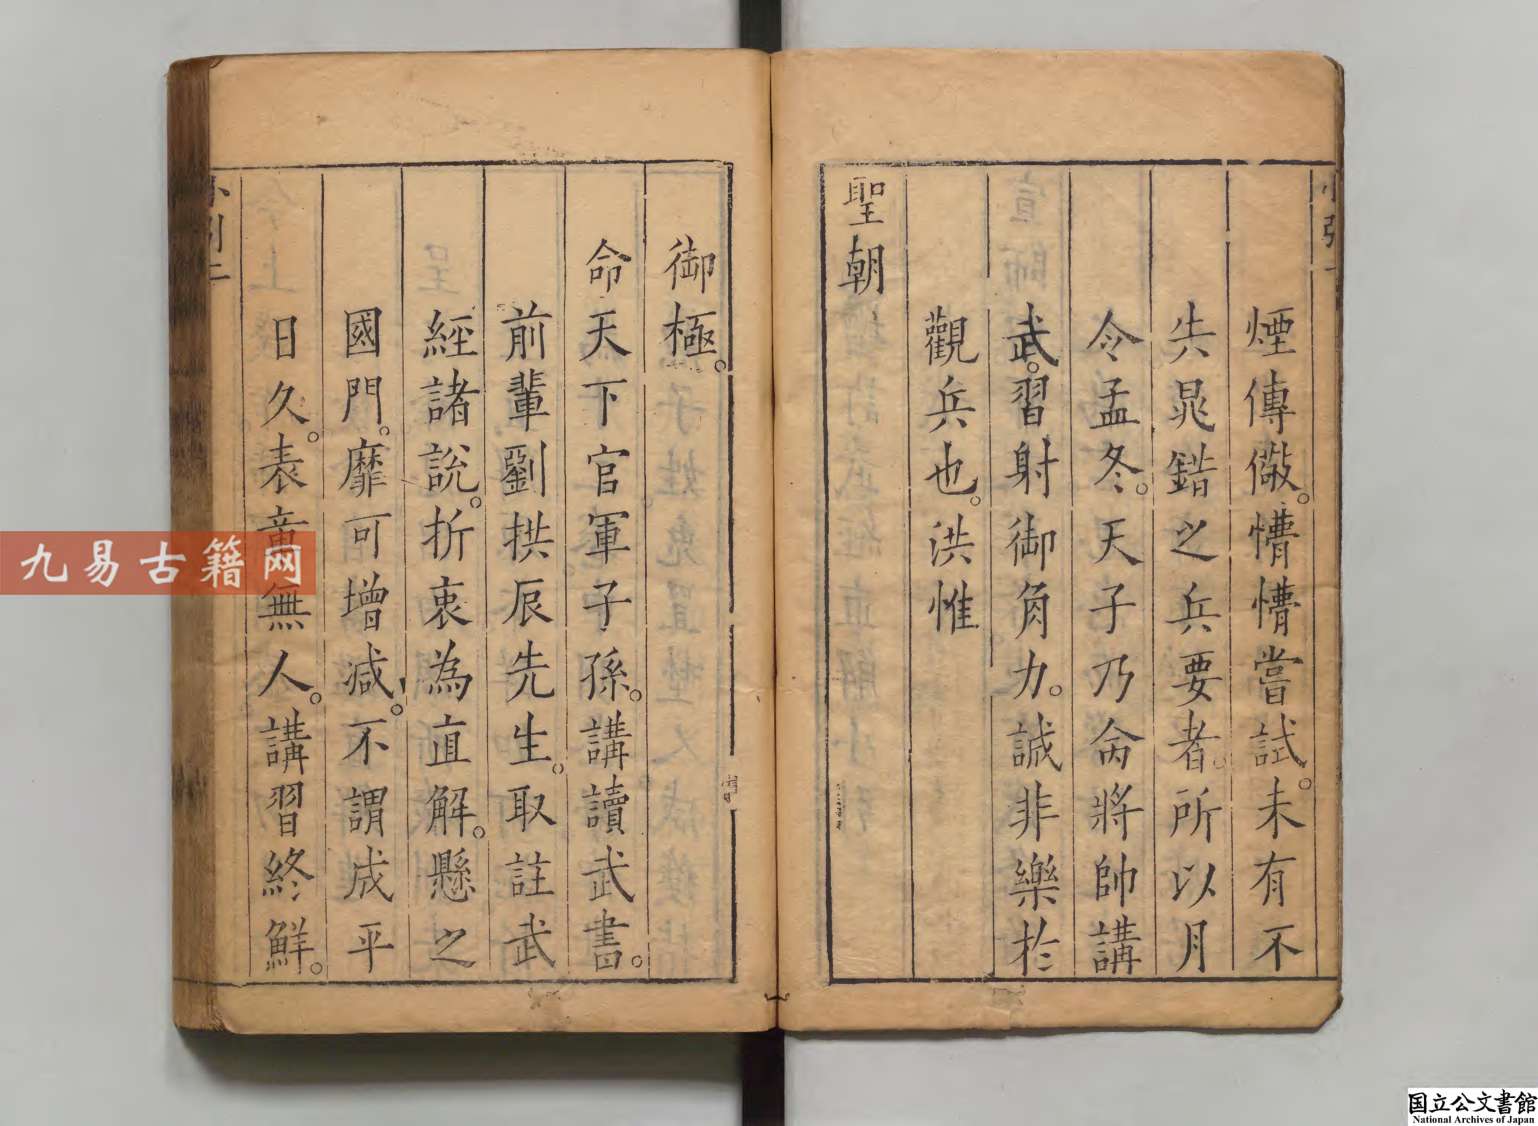 煙傳儆。懵懵嘗試。未有不
先晁錯之兵要者。所以月
令孟冬。天子乃命將帥講
武。習射御角力。誠非樂於
觀兵也。洪惟
聖朝
御極。
命天下官軍子孫。講讀武書。
前輩劉拱辰先生。取註武
經諸說。折衷為直解。懸之
國門。靡可增減。不謂成平
日久。表章無人。講習終鮮。
小引二
九易古籍网
国立公文書館
National Archives of Japan